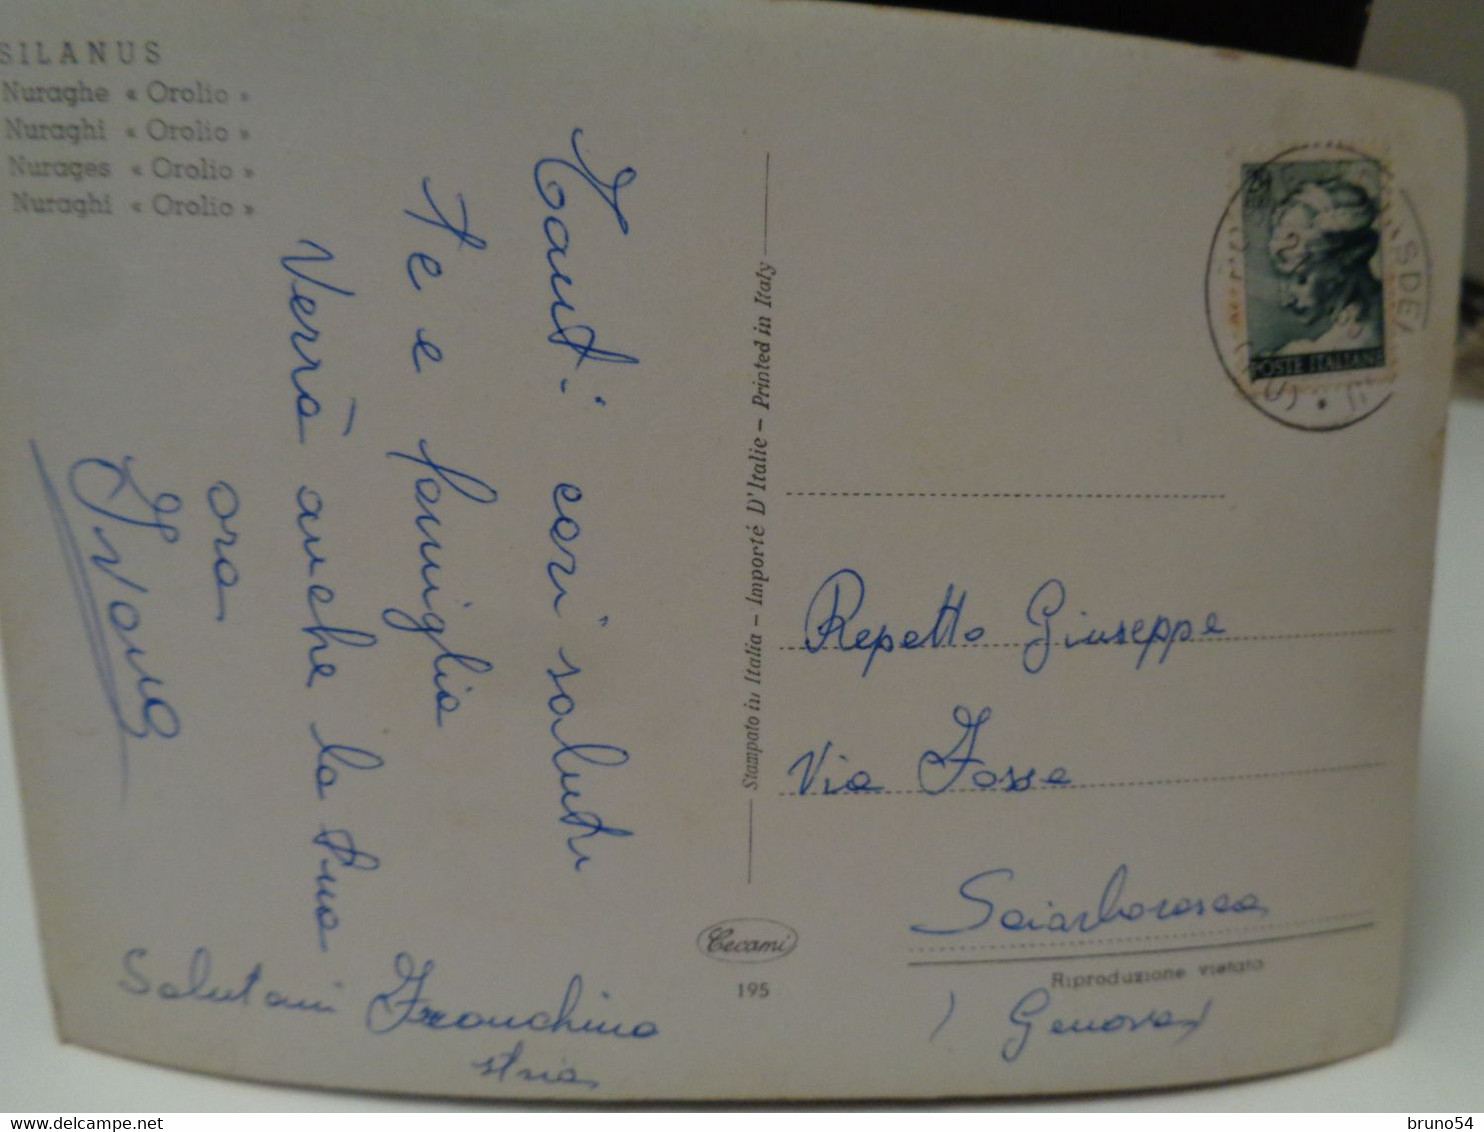 SILANUS
Nuraghe « Orolio »
Nuraghi « Orolio »
Nurages « Orolio »
Nuraghi « Orolio »
Tanti cari saluti
Te e famiglia
Verrà anche la tua
ora
Ivana
Salutami Franchina
Stampato in Italia - Importé D'Italie - Printed in Italy
Cecami
195
POSTE ITALIANE
Repetto Giuseppe
Via Fossa
Sciarborasca
Riproduzione vietata
(Genova)
bruno54